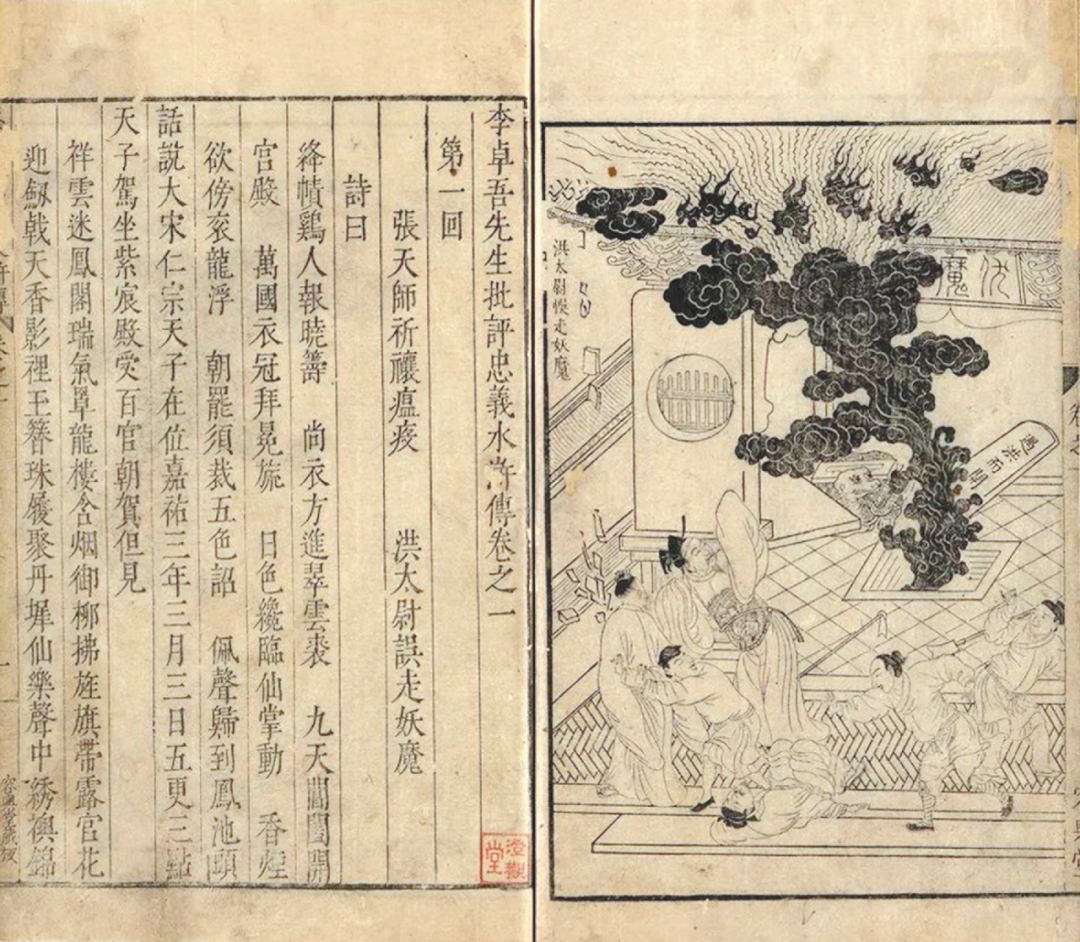 洪太尉悞走妖魔
伏魔
遇洪而開
李卓吾先生批評忠義水滸傳卷之一
第一回
張天師祈禳瘟疫　洪太尉誤走妖魔
詩曰
絳幘鷄人報曉籌　尚衣方進翠雲裘　九天閶闔開
宮殿　萬國衣冠拜冕旒　日色纔臨仙掌動　香煙
欲傍衮龍浮　朝罷須裁五色詔　佩聲歸到鳳池頭
話說大宋仁宗天子在位嘉祐三年三月三日五更三點
天子駕坐紫宸殿受百官朝賀但見
祥雲迷鳳閣瑞氣罩龍樓含烟御柳拂旌旗帶露宮花
迎劔戟天香影裡玉簪珠履聚丹墀仙樂聲中綉襖錦
容與堂藏板
澄觀堂